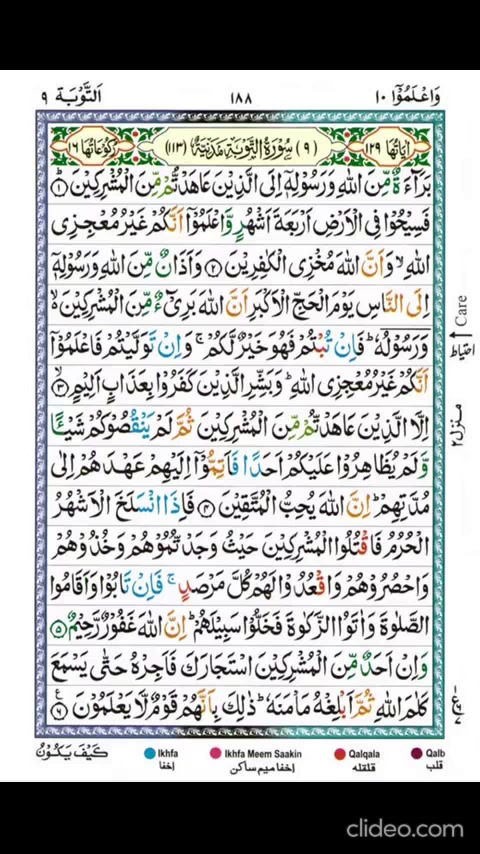 وَاعْلَمُوْۤا ١٠
١٨٨
اَلتَّوْبَة ٩
اٰيَاتُهَا ١٢٩
(٩) سُوْرَةُ التَّوْبَةِ مَدَنِيَّةٌ (١١٣)
رُكُوْعَاتُهَا ١٦
بَرَآءَةٌ مِّنَ اللّٰهِ وَرَسُوْلِهٖۤ اِلَى الَّذِيْنَ عَاهَدْتُّمْ مِّنَ الْمُشْرِكِيْنَ ؕ﴿١﴾
فَسِيْحُوْا فِى الْاَرْضِ اَرْبَعَةَ اَشْهُرٍ وَّاعْلَمُوْۤا اَنَّكُمْ غَيْرُ مُعْجِزِى
اللّٰهِ ۙ وَاَنَّ اللّٰهَ مُخْزِى الْكٰفِرِيْنَ ﴿٢﴾ وَاَذَانٌ مِّنَ اللّٰهِ وَرَسُوْلِهٖۤ
اِلَى النَّاسِ يَوْمَ الْحَجِّ الْاَكْبَرِ اَنَّ اللّٰهَ بَرِىْٓءٌ مِّنَ الْمُشْرِكِيْنَ ۙ
وَرَسُوْلُهٗ ؕ فَاِنْ تُبْتُمْ فَهُوَ خَيْرٌ لَّكُمْ ۚ وَاِنْ تَوَلَّيْتُمْ فَاعْلَمُوْۤا
اَنَّكُمْ غَيْرُ مُعْجِزِى اللّٰهِ ؕ وَبَشِّرِ الَّذِيْنَ كَفَرُوْا بِعَذَابٍ اَلِيْمٍ ۙ﴿٣﴾
اِلَّا الَّذِيْنَ عَاهَدْتُّمْ مِّنَ الْمُشْرِكِيْنَ ثُمَّ لَمْ يَنْقُصُوْكُمْ شَيْـًٔا
وَّلَمْ يُظَاهِرُوْا عَلَيْكُمْ اَحَدًا فَاَتِمُّوْۤا اِلَيْهِمْ عَهْدَهُمْ اِلٰى
مُدَّتِهِمْ ؕ اِنَّ اللّٰهَ يُحِبُّ الْمُتَّقِيْنَ ﴿٤﴾ فَاِذَا انْسَلَخَ الْاَشْهُرُ
الْحُرُمُ فَاقْتُلُوا الْمُشْرِكِيْنَ حَيْثُ وَجَدْتُّمُوْهُمْ وَخُذُوْهُمْ
وَاحْصُرُوْهُمْ وَاقْعُدُوْا لَهُمْ كُلَّ مَرْصَدٍ ۚ فَاِنْ تَابُوْا وَاَقَامُوا
الصَّلٰوةَ وَاٰتَوُا الزَّكٰوةَ فَخَلُّوْا سَبِيْلَهُمْ ؕ اِنَّ اللّٰهَ غَفُوْرٌ رَّحِيْمٌ ﴿٥﴾
وَاِنْ اَحَدٌ مِّنَ الْمُشْرِكِيْنَ اسْتَجَارَكَ فَاَجِرْهُ حَتّٰى يَسْمَعَ
كَلٰمَ اللّٰهِ ثُمَّ اَبْلِغْهُ مَاْمَنَهٗ ؕ ذٰلِكَ بِاَنَّهُمْ قَوْمٌ لَّا يَعْلَمُوْنَ ﴿٦﴾
Care
احتیاط
منزل ٢
كَيْفَ يَكُوْنُ
Ikhfa
اخفا
Ikhfa Meem Saakin
اخفا میم ساکن
Qalqala
قلقله
Qalb
قلب
clideo.com